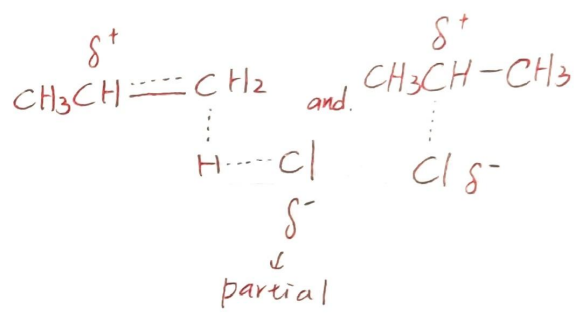 δ+ δ+
CH3CH CH2 and. CH3CH-CH3
H Cl Cl δ-
δ-
partial